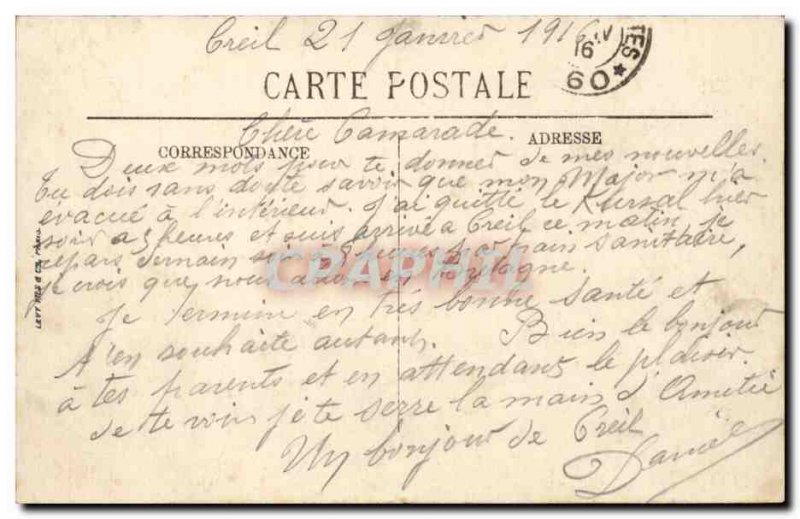 Creil 21 Janvier 1916
16
60 *
CARTE POSTALE
Chère Camarade.
CORRESPONDANCE
ADRESSE
Deux mots pour te donner de mes nouvelles.
tu dois sans doute savoir que mon Major m'a
evacué à l'intérieur. J'ai quitté le Kursal hier
soir a 5 heures et suis arrivé a Creil ce matin, je
repars demain soir a heures par train sanitaire,
je crois que nous allons en Bretagne.
Je termine en très bonne santé et
t'en souhaite autant. Bien le bonjour
à tes parents et en attendant le plaisir
de te voir je te serre la main d'Amitié
Un bonjour de Creil
Daniel
LEVY FILS & Cie, PARIS
CPAPHIL